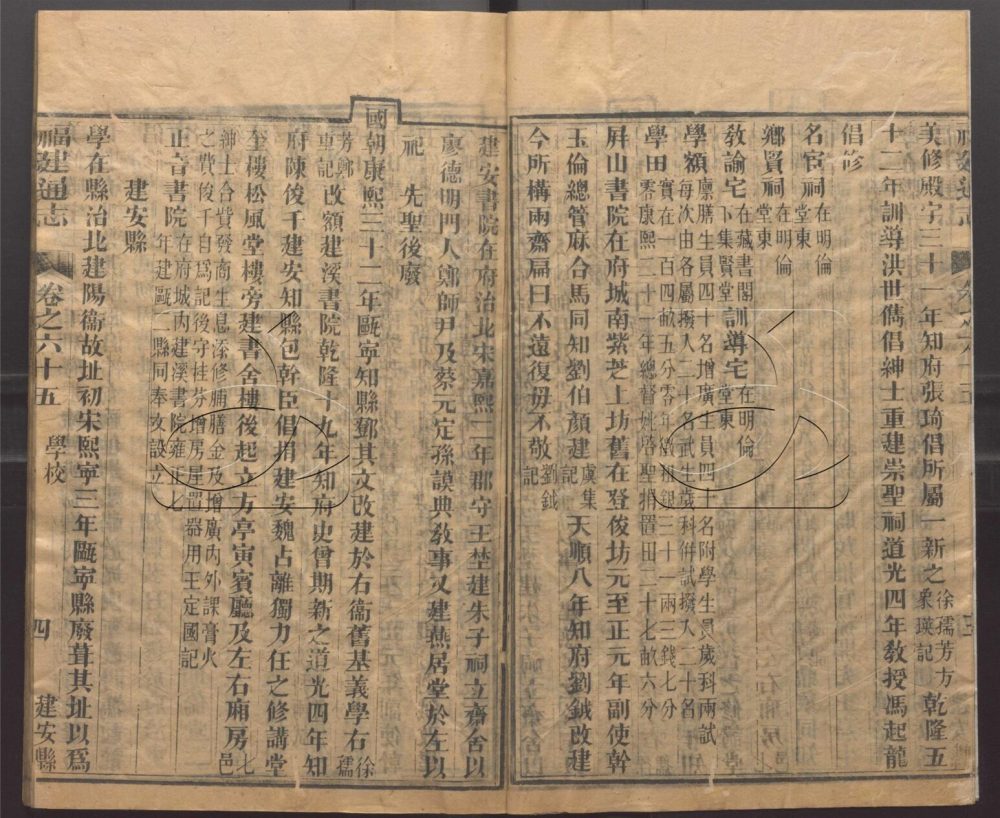 美修殿宇三十一年知府張琦倡所屬一新之徐孺芳方象瑛記乾隆五
十二年訓導洪世儁倡紳士重建崇聖祠道光四年教授馮起龍
倡修
名宦祠在明倫堂東
鄉賢祠在明倫堂東
教諭宅在藏書閣下集賢堂訓導宅在明倫堂東
學額廩膳生員四十名增廣生員四十名附學生員歲科兩試每次由各屬撥入二十名武生歲科併試撥入二十名
學田實在一百四畝五分零年徵租銀三十一兩三錢七分零康熙三十一年總督姚啓聖捐置田二十七畝六分
屏山書院在府城南紫芝上坊舊在登俊坊元至正元年副使幹
玉倫總管麻合馬同知劉伯顏建虞集記天順八年知府劉鉞改建
今所構兩齋扁曰不遠復毋不敬劉鉞記
建安書院在府治北宋嘉熙二年郡守王埜建朱子祠立齋舍以
廖德明門人鄭師尹及蔡元定孫謨典教事又建燕居堂於左以
祀 先聖後廢
國朝康熙三十二年甌寧知縣鄧其文改建於右衞舊基義學右徐孺芳鄭重記改額建溪書院乾隆十九年知府史曾期新之道光四年知
府陳俊千建安知縣包幹臣倡捐建安魏占離獨力任之修講堂
奎樓松風堂樓旁建書舍樓後起立方亭寅賓廳及左右廂房七邑
紳士合貲發商生息添修脯膳金及增廣內外課膏火之費俊千自爲記後守桂芬增房屋置器用王定國記
正音書院在府城內建溪書院雍正七年建甌二縣同奉文設立
建安縣
學在縣治北建陽衞故址初宋熙寧三年甌寧縣廢葺其址以爲
福建通志 卷之六十五 學校 四 建安縣